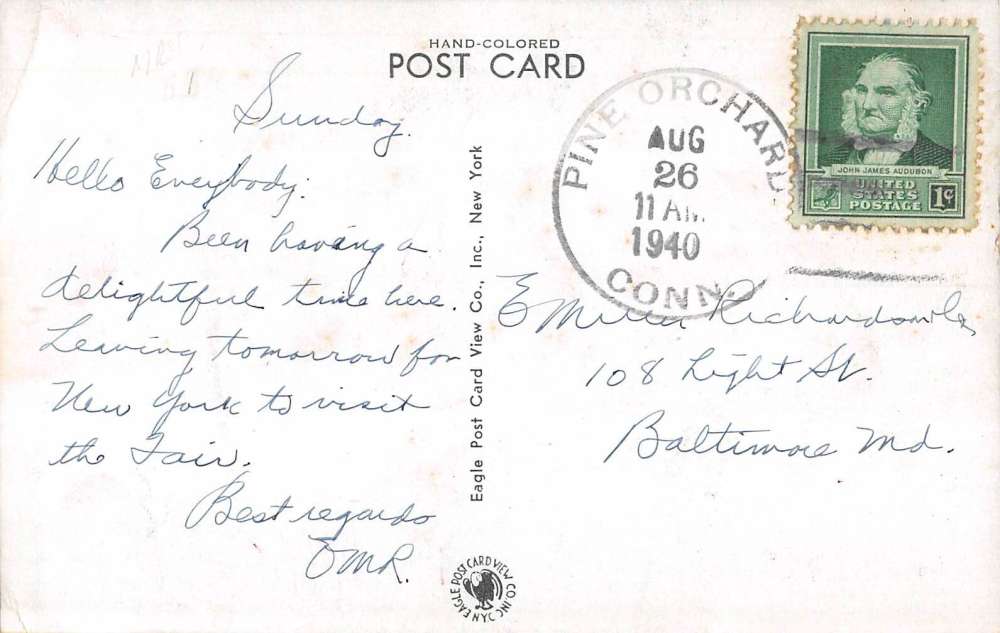 HAND-COLORED
POST CARD
Sunday.
Hello Everybody:
Been having a
delightful time here.
Leaving tomorrow for
New York to visit
the Fair.
Best regards
OMR.
Eagle Post Card View Co., Inc., New York
EAGLE POST CARD VIEW CO. INC. N.Y.C.
PINE ORCHARD
AUG
26
11 AM
1940
CONN.
JOHN JAMES AUDUBON
UNITED
STATES
POSTAGE
1¢
108 Light St.
Baltimore Md.